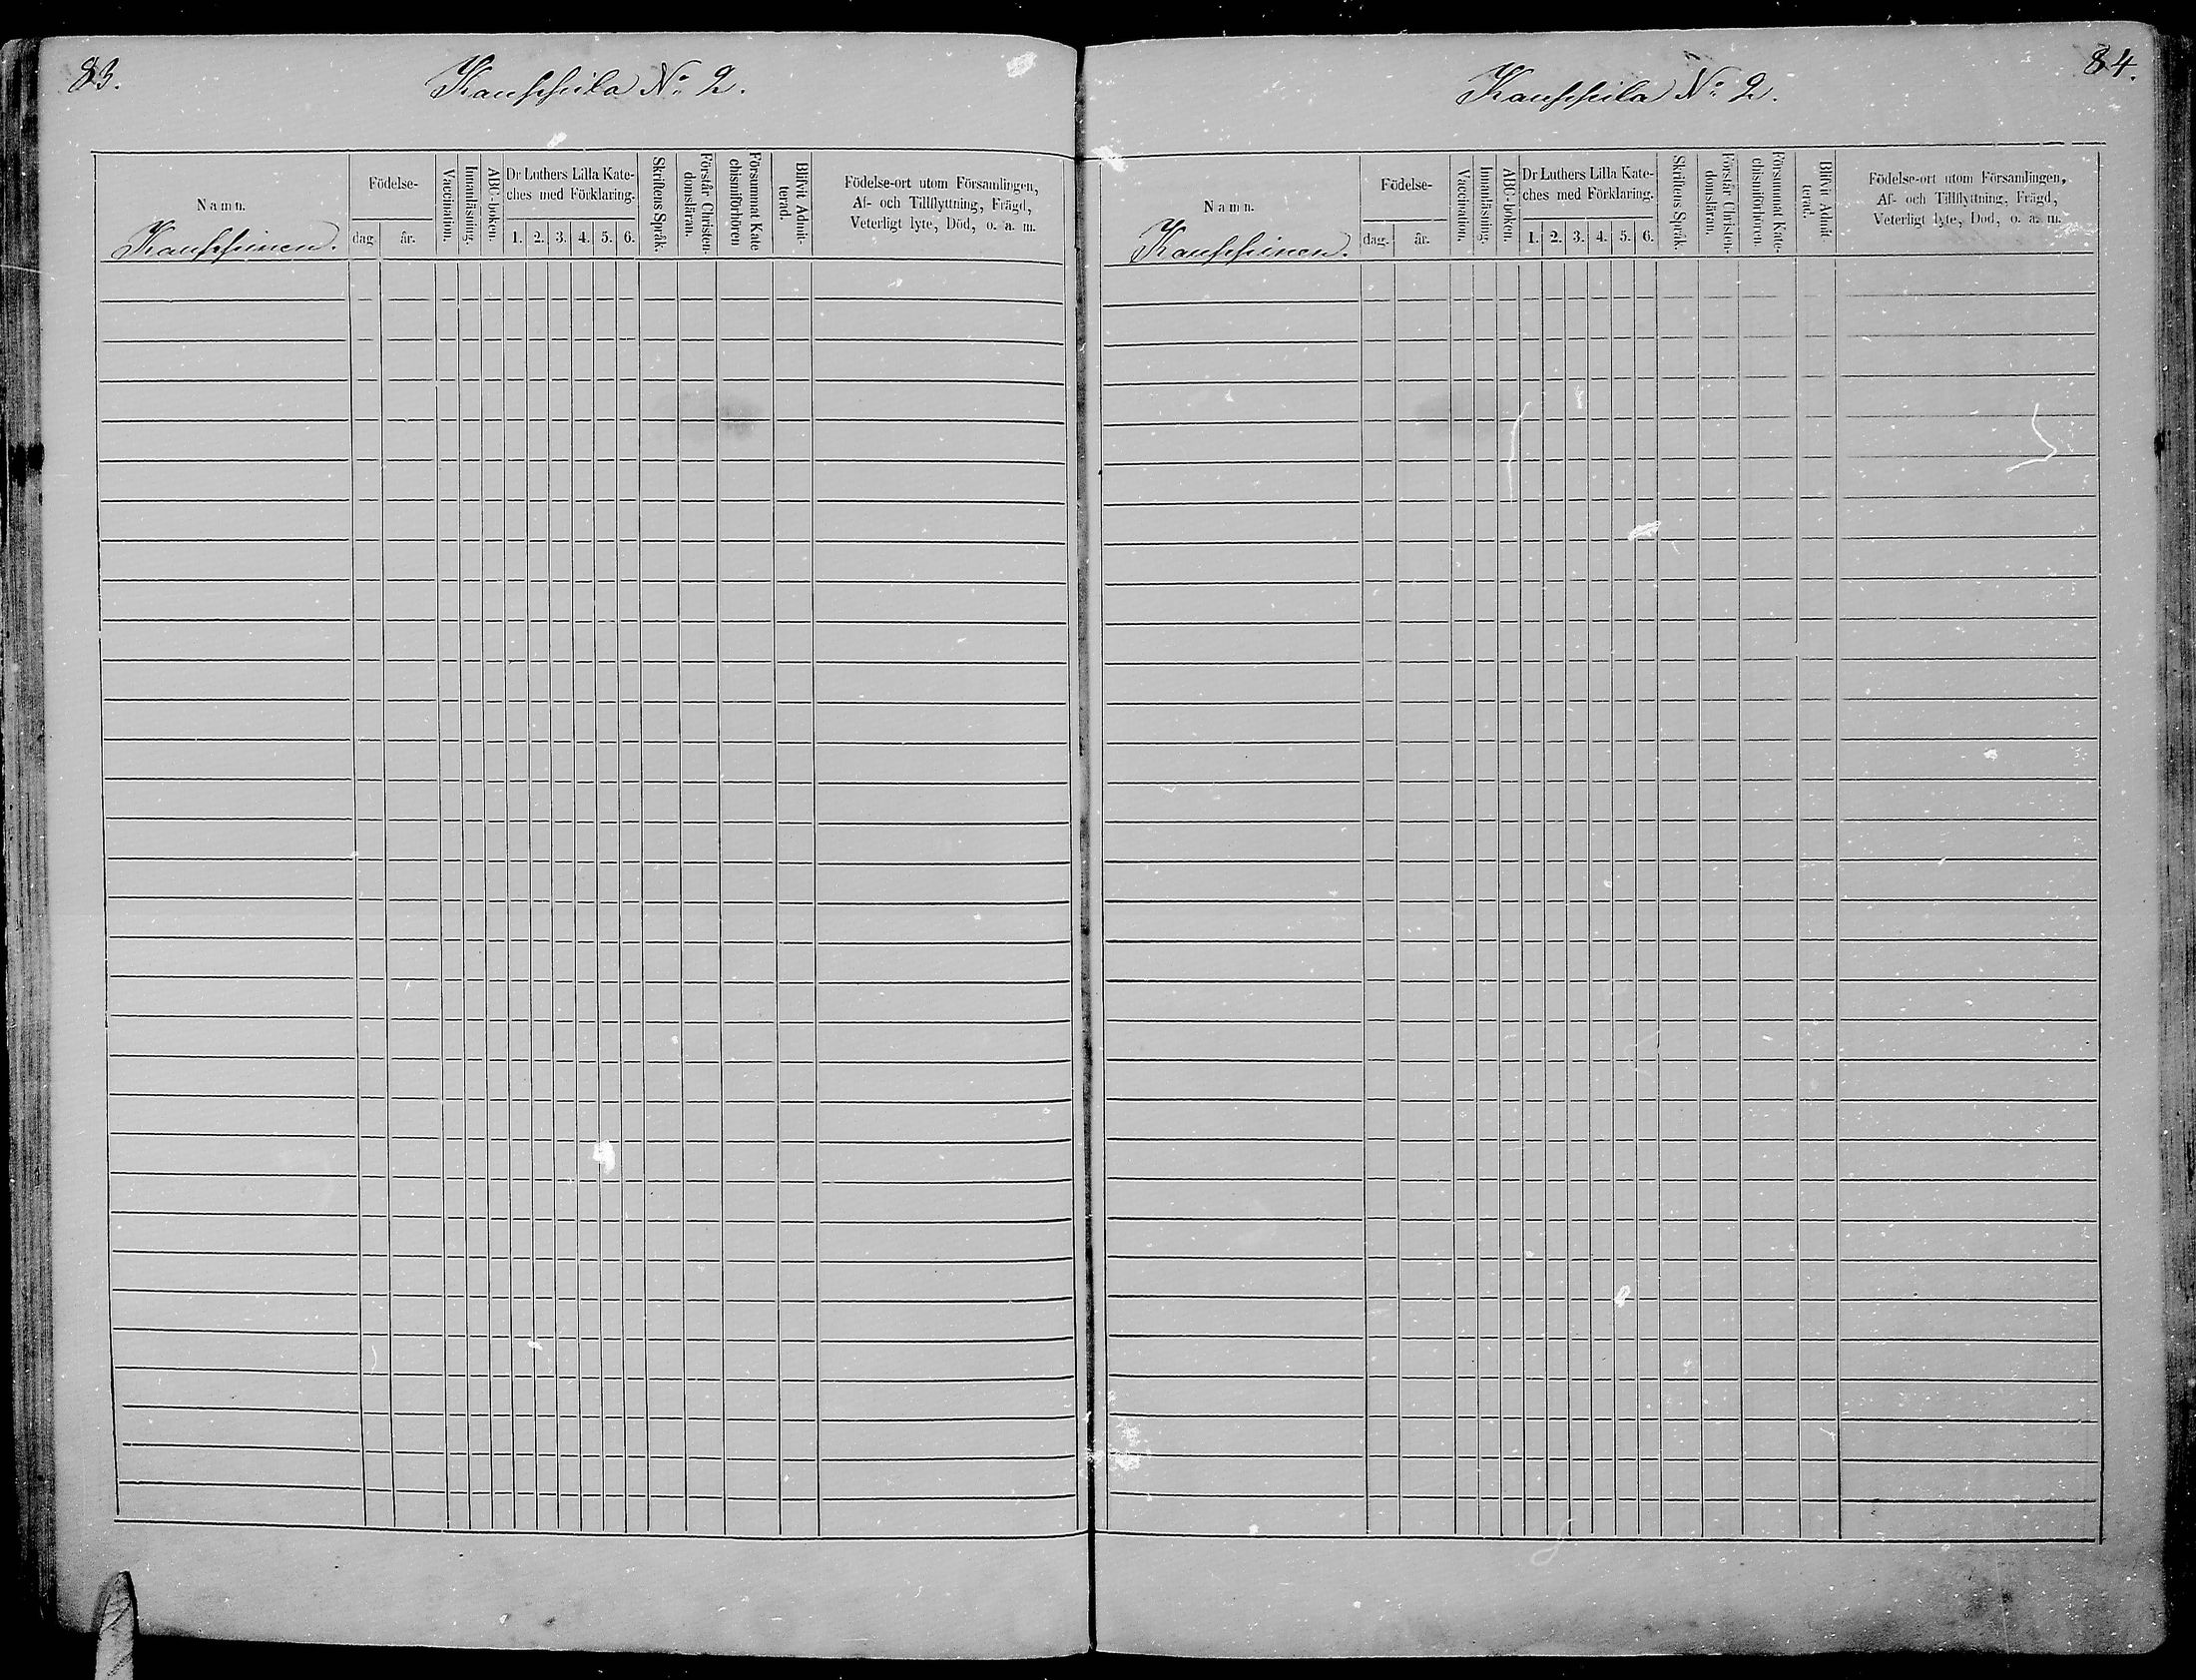 83.
Kaupppila No 2.
Namn.
Födelse-
dag
år.
Vaccination.
Innanläsning.
ABC-boken.
Dr Luthers Lilla Kate-
ches med Förklaring.
1. 2. 3. 4. 5. 6.
Skriftens Språk.
Förstår Christen-
domsläran.
Försummat Kate
chismiförhören
Blifvit Admit-
terad.
Födelse-ort utom Församlingen,
Af- och Tillflyttning, Frägd,
Veterligt lyte, Död, o. a. m.
84.
Namn.
Födelse-
dag.
år.
Vaccination.
Innanläsning.
ABC-boken.
Dr Luthers Lilla Kate-
ches med Förklaring.
1. 2. 3. 4. 5. 6.
Skriftens Språk.
Förstår Christen-
domsläran.
Försummat Kate-
chismiförhören.
Blifvit Admit-
terad.
Födelse-ort utom Församlingen,
Af- och Tillflyttning, Frägd,
Veterligt lyte, Död, o. a. m.